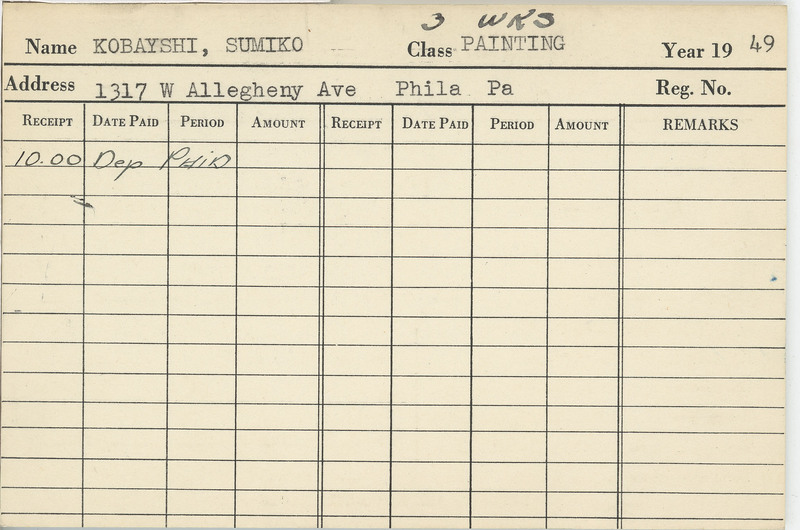 3 WKS
Name KOBAYSHI, SUMIKO Class PAINTING Year 19 49
Address 1317 W Allegheny Ave Phila Pa Reg. No.
RECEIPT DATE PAID PERIOD AMOUNT RECEIPT DATE PAID PERIOD AMOUNT REMARKS
10.00 Dep PAID